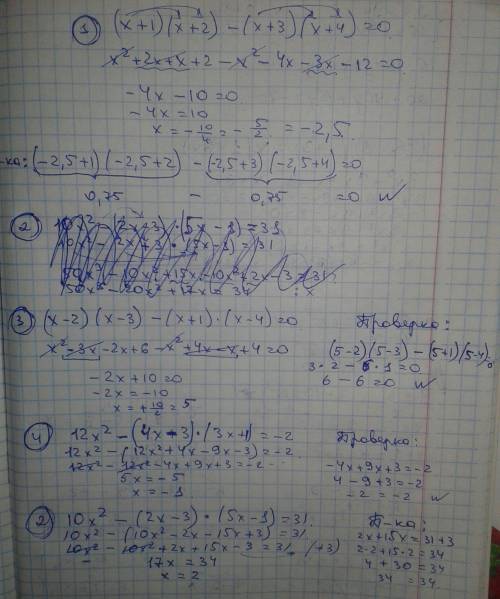 1 (x+1)(x+2) - (x+3)(x+4)=0
x²+2x+x+2-x²-4x-3x-12=0
-4x-10=0
-4x=10
x=-10/4=-5/2=-2,5.
-ка: (-2,5+1)(-2,5+2)-(-2,5+3)(-2,5+4)=0
0,75 - 0,75 =0
2
3 (x-2)(x-3)-(x+1)·(x-4)=0
x²-3x-2x+6-x²+4x-x+4=0
-2x+10=0
-2x=-10
x=+10/2=5
Проверка:
(5-2)(5-3)-(5+1)(5-4)
3·2-6·1=0
6-6=0
4 12x²-(4x-3)·(3x+1)=-2
12x²-(12x²+4x-9x-3)=-2
12x²-12x²-4x+9x+3=-2
5x=-5
x=-1
Проверка:
-4x+9x+3=-2
4-9+3=-2
-2=-2
2 10x²-(2x-3)·(5x-1)=31
10x²-(10x²-2x-15x+3)=31
10x²-10x²+2x+15x-3=31 (+3)
17x=34
x=2
П-ка:
2x+15x=31+3
2·2+15·2=34
4+30=34
34=34